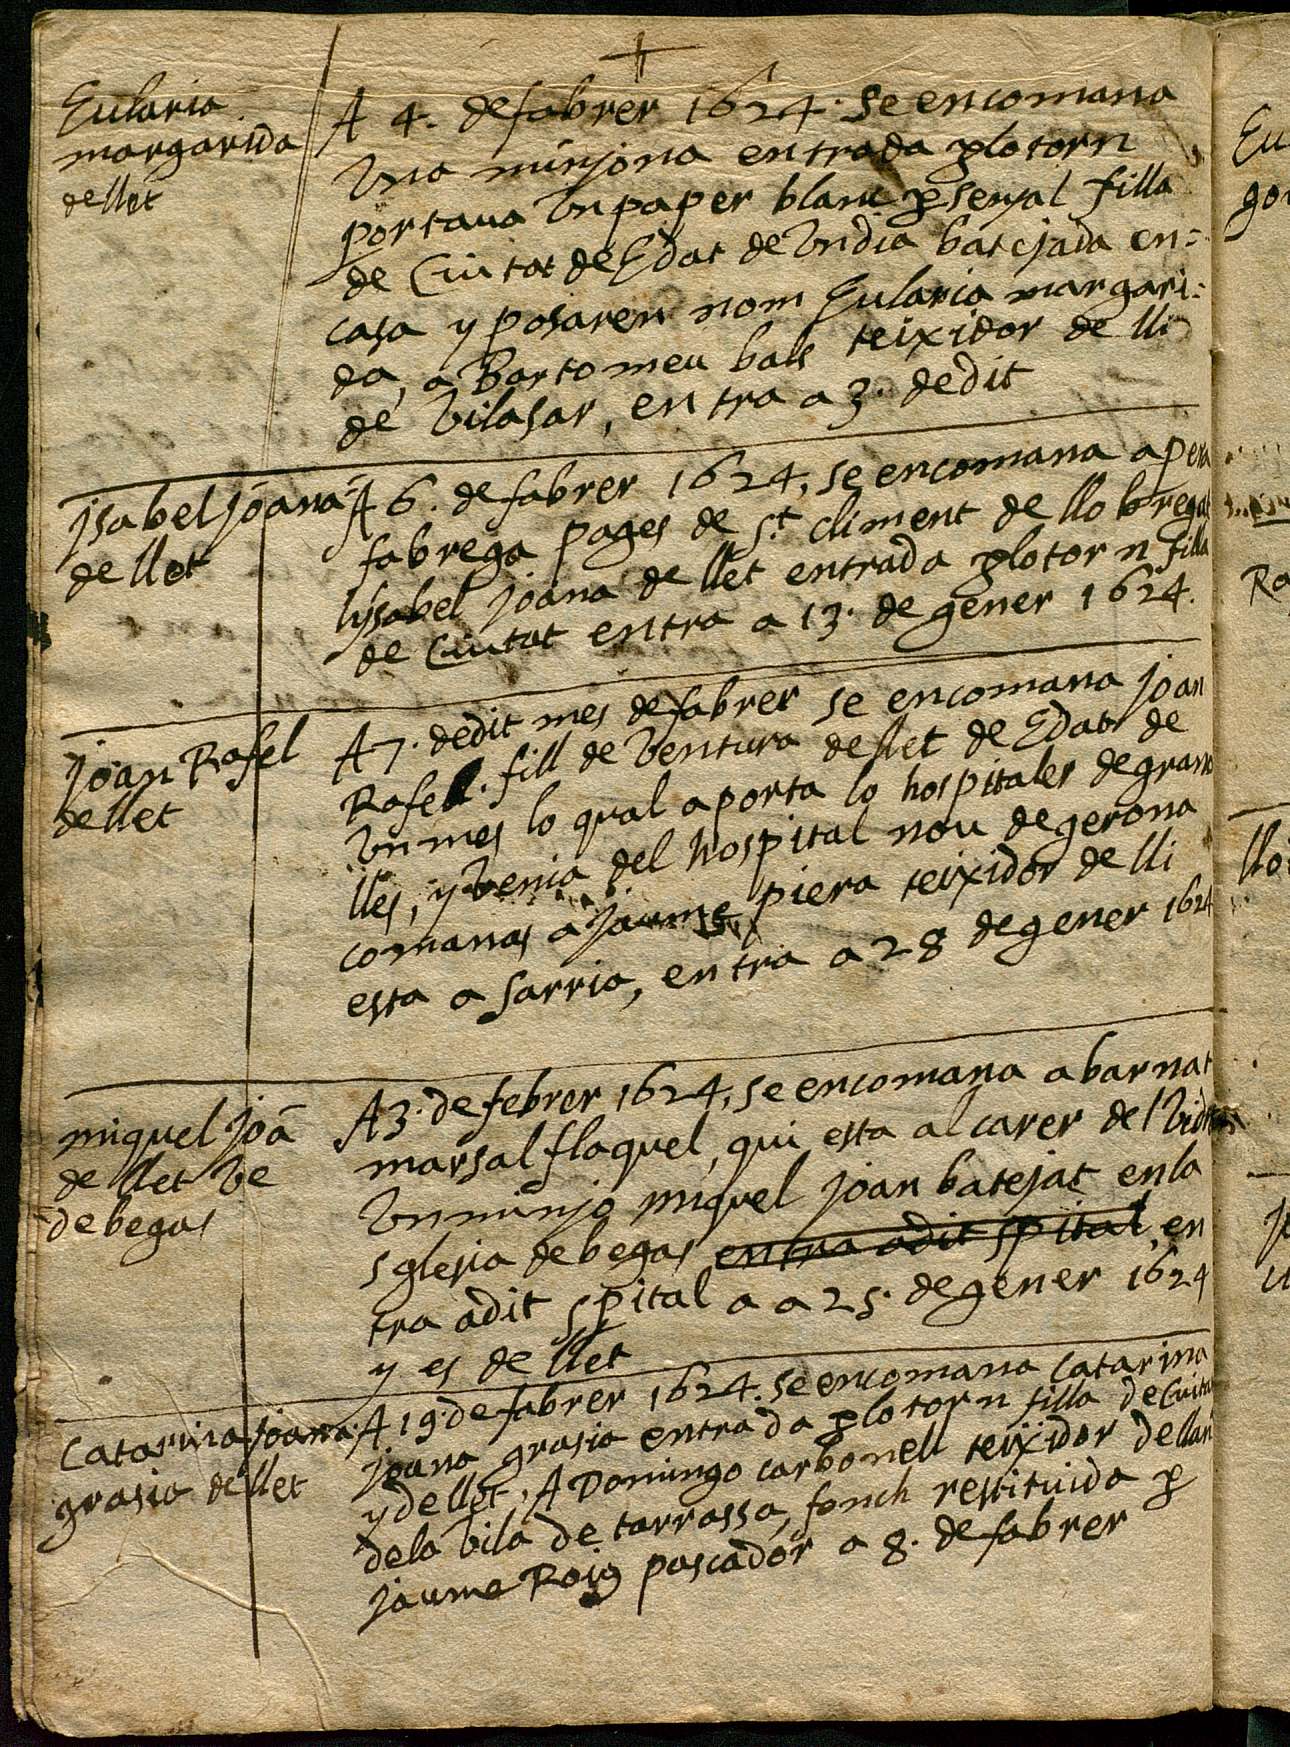 Eularia
margarida
de llet
A 4. de fabrer 1624. se encomana
Una minjona entrada p lo torn
portaua Un paper blanc p senyal filla
de Ciutat de Edat de Un dia batejada en=
casa y posaren nom Eularia margari=
da, a Bartomeu bals teixidor de lli
de Vilasar, entra a 3. dedit
ysabel joana
de llet
A 6. de fabrer 1624, se encomana a pera
fabrega pages de St. Climent de llobregat
ysabel joana de llet entrada p lo torn filla
de Ciutat entra a 13. de gener 1624.
joan Rafel
de llet
A 7. dedit mes de fabrer se encomana joan
Rafel. fill de Ventura de llet de Edat de
Un mes lo qual aporta lo hospitaler de grano
lles, y Venia del hospital nou de gerona
comanas a jaume piera teixidor de lli
esta a Sarria, entra a 28 de gener 1624
miquel joā
de llet Ve
de begas
A 3. de febrer 1624, se encomana a barnat
marsal flaquel, qui esta al carer del Vidre
Un minjo miquel joan batejat en la
sglesia de begas entra adit spital, en
tra adit spital a a 25. de gener 1624
y es de llet
Catarina joana
grasia de llet
A 19. de fabrer 1624. se encomana Catarina
joana grasia entrada p lo torn filla de Ciutat
y de llet, A Domingo carbonell teixidor de llana
de la Vila de tarrassa, fonch restituida p
jaume Roig pascador a 8. de fabrer
Eu